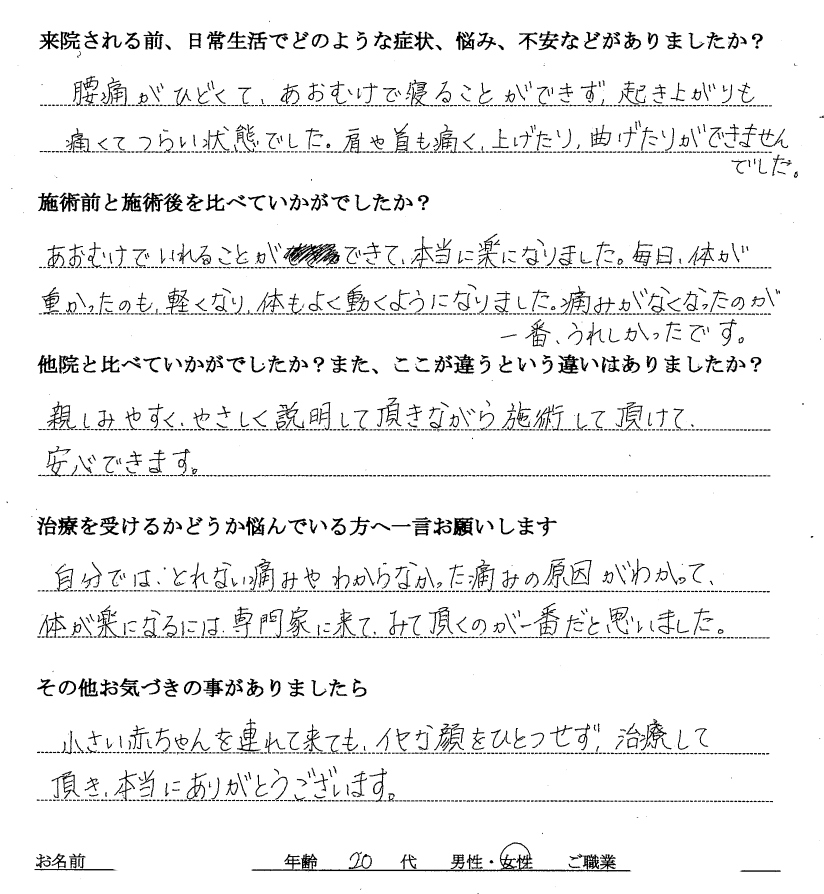 来院される前、日常生活でどのような症状、悩み、不安などがありましたか？
腰痛がひどくて、あおむけで寝ることができず、起き上がりも
痛くてつらい状態でした。肩や首も痛く、上げたり、曲げたりができません
でした。
施術前と施術後を比べていかがでしたか？
あおむけでいれることができて、本当に楽になりました。毎日、体が
重かったのも、軽くなり、体もよく動くようになりました。痛みがなくなったのが
一番、うれしかったです。
他院と比べていかがでしたか？また、ここが違うという違いはありましたか？
親しみやすく、やさしく説明して頂きながら施術して頂けて、
安心できます。
治療を受けるかどうか悩んでいる方へ一言お願いします
自分では、とれない痛みやわからなかった痛みの原因がわかって、
体が楽になるには、専門家に来て、みて頂くのが一番だと思いました。
その他お気づきの事がありましたら
小さい赤ちゃんを連れて来ても、イヤな顔をひとつせず、治療して
頂き、本当にありがとうございます。
お名前 年齢 20 代 男性・女性 ご職業